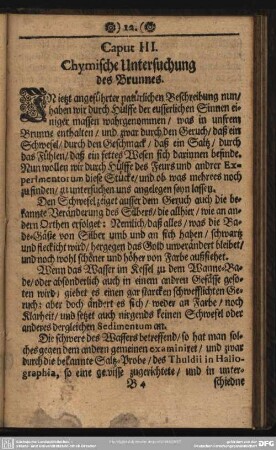 12.
Caput III.
Chymische Untersuchung
des Brunnes.
IN ietzt angeführter natürlichen Beschreibung nun/
haben wir durch Hülffe der eusserlichen Sinnen ei-
niger massen wahrgenommen / was in unsrem
Brunne enthalten / und zwar durch den Geruch / daß ein
Schwefel / durch den Geschmack / daß ein Saltz / durch
das Fühlen / daß ein fettes Wesen sich darinnen befinde.
Nun wollen wir durch Hülffe des Feurs und andrer Ex-
perimentorum diese Stücke / und ob was mehres noch
zu finden / zu untersuchen uns angelegen seyn lassen.
Den Schwefel zeiget ausser dem Geruch auch die be-
kannte Veränderung des Silbers / die allhier / wie an an-
dern Orthen erfolget: Nemtlich / daß alles / was die Ba-
de-Gäste von Silber umb und an sich haben / schwartz
und fleckicht wird / hergegen das Gold unverändert bleibet /
und noch wohl schöner und höher von Farbe aussiehet.
Wenn das Wasser im Kessel zu dem Wanne-Ba-
de / oder absonderlich auch in einem andren Gefässe gesot-
ten wird / giebet es einen gar starcken schwefflichten Ge-
ruch: aber doch ändert es sich / weder an Farbe / noch
Klarheit / und setzet auch nirgends keinen Schwefel oder
anderes dergleichen Sedimentum an.
Die schwere des Wassers betreffend / so hat man sol-
ches gegen dem andern gemeinen examiniret / und zwar
durch die bekannte Saltz-Probe / des Thuldii in Halio-
graphia, so eine gewisse zugerichtete / und in unter-
B 4 schiedne